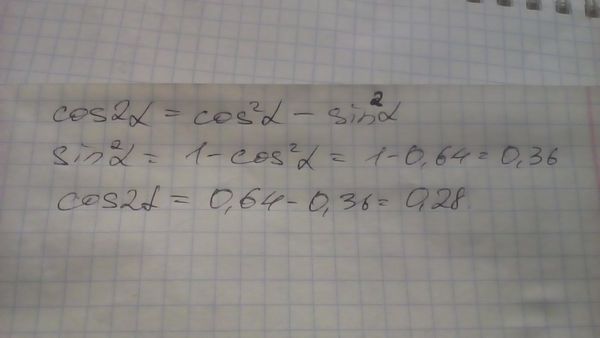 cos2α = cos²α − sin²α
sin²α = 1 − cos²α = 1 − 0,64 = 0,36
cos2α = 0,64 − 0,36 = 0,28.